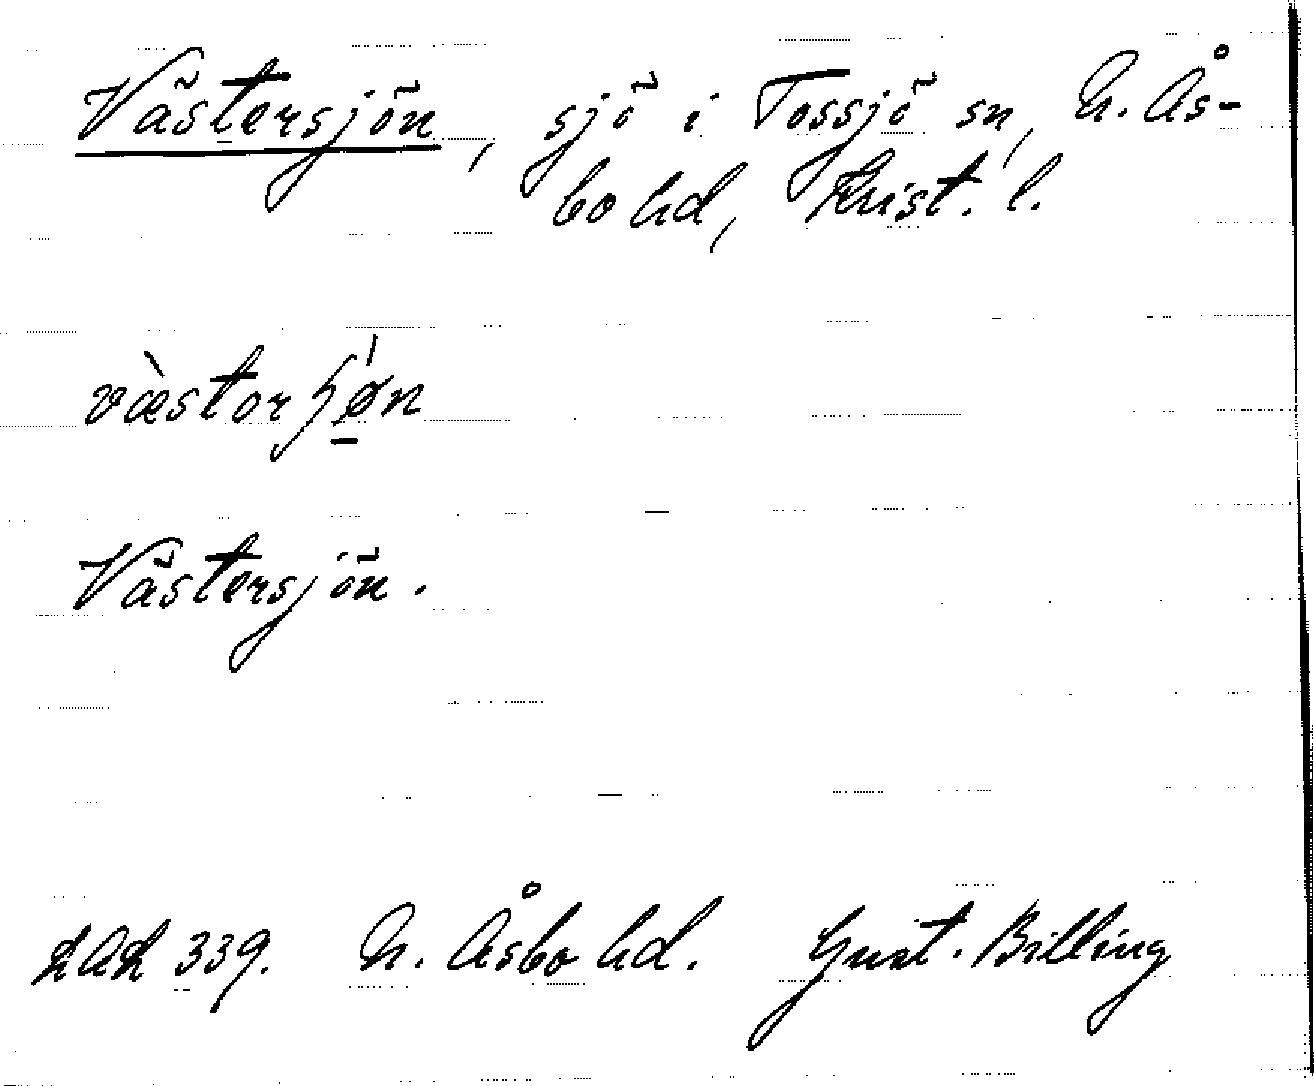 Västersjön, sjö i Tossjö sn, N. Ås-
bo hd, Krist. l.
Västersjön.
LAL 339. N. Åsbo hd. Gust. Billing